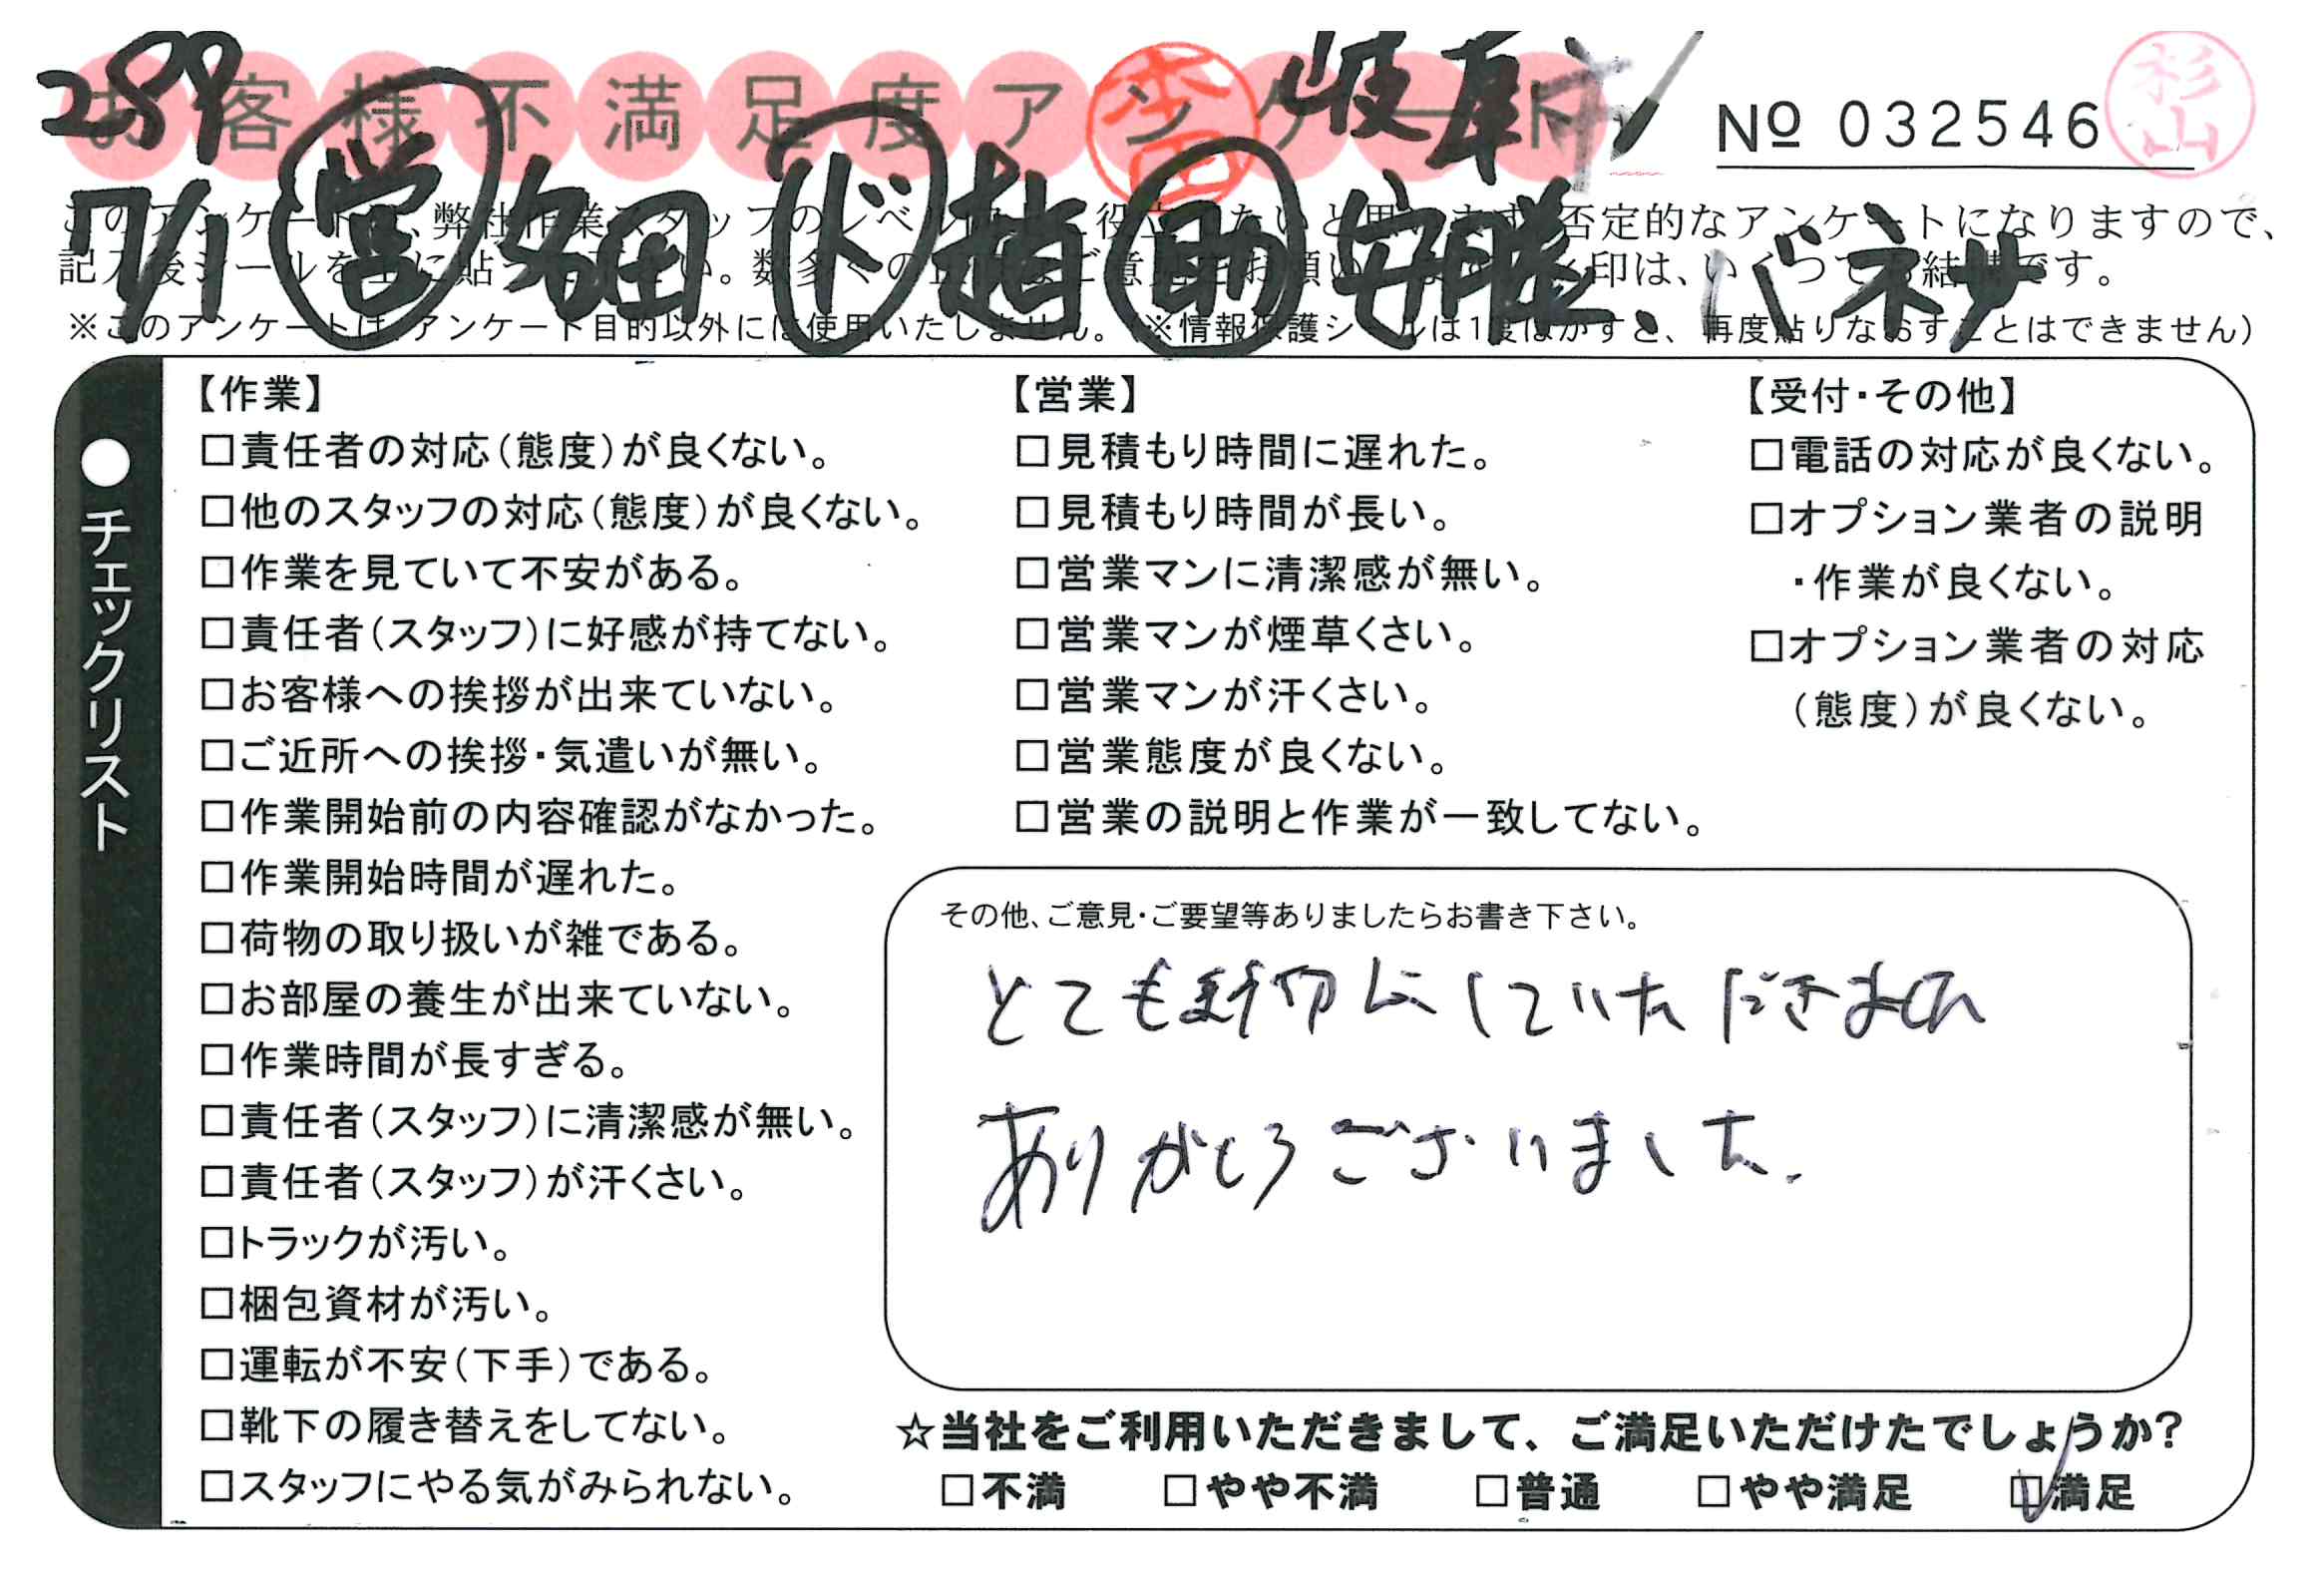 289 岐阜
お客様不満足度アンケート
本田
№ 032546
杉山
7/1 営 名田 ド 趙 助 安勝、バネサ
否定的なアンケートになりますので、
※このアンケートは、アンケート目的以外には使用いたしません。（※情報保護シールは1度はがすと、再度貼りなおすことはできません）
●チェックリスト
【作業】
□責任者の対応（態度）が良くない。
□他のスタッフの対応（態度）が良くない。
□作業を見ていて不安がある。
□責任者（スタッフ）に好感が持てない。
□お客様への挨拶が出来ていない。
□ご近所への挨拶・気遣いが無い。
□作業開始前の内容確認がなかった。
□作業開始時間が遅れた。
□荷物の取り扱いが雑である。
□お部屋の養生が出来ていない。
□作業時間が長すぎる。
□責任者（スタッフ）に清潔感が無い。
□責任者（スタッフ）が汗くさい。
□トラックが汚い。
□梱包資材が汚い。
□運転が不安（下手）である。
□靴下の履き替えをしてない。
□スタッフにやる気がみられない。
【営業】
□見積もり時間に遅れた。
□見積もり時間が長い。
□営業マンに清潔感が無い。
□営業マンが煙草くさい。
□営業マンが汗くさい。
□営業態度が良くない。
□営業の説明と作業が一致してない。
【受付・その他】
□電話の対応が良くない。
□オプション業者の説明
・作業が良くない。
□オプション業者の対応
（態度）が良くない。
その他、ご意見・ご要望等ありましたらお書き下さい。
とても親切にしていただきまして
ありがとうございました.
☆当社をご利用いただきまして、ご満足いただけたでしょうか？
□不満 □やや不満 □普通 □やや満足 ☑満足